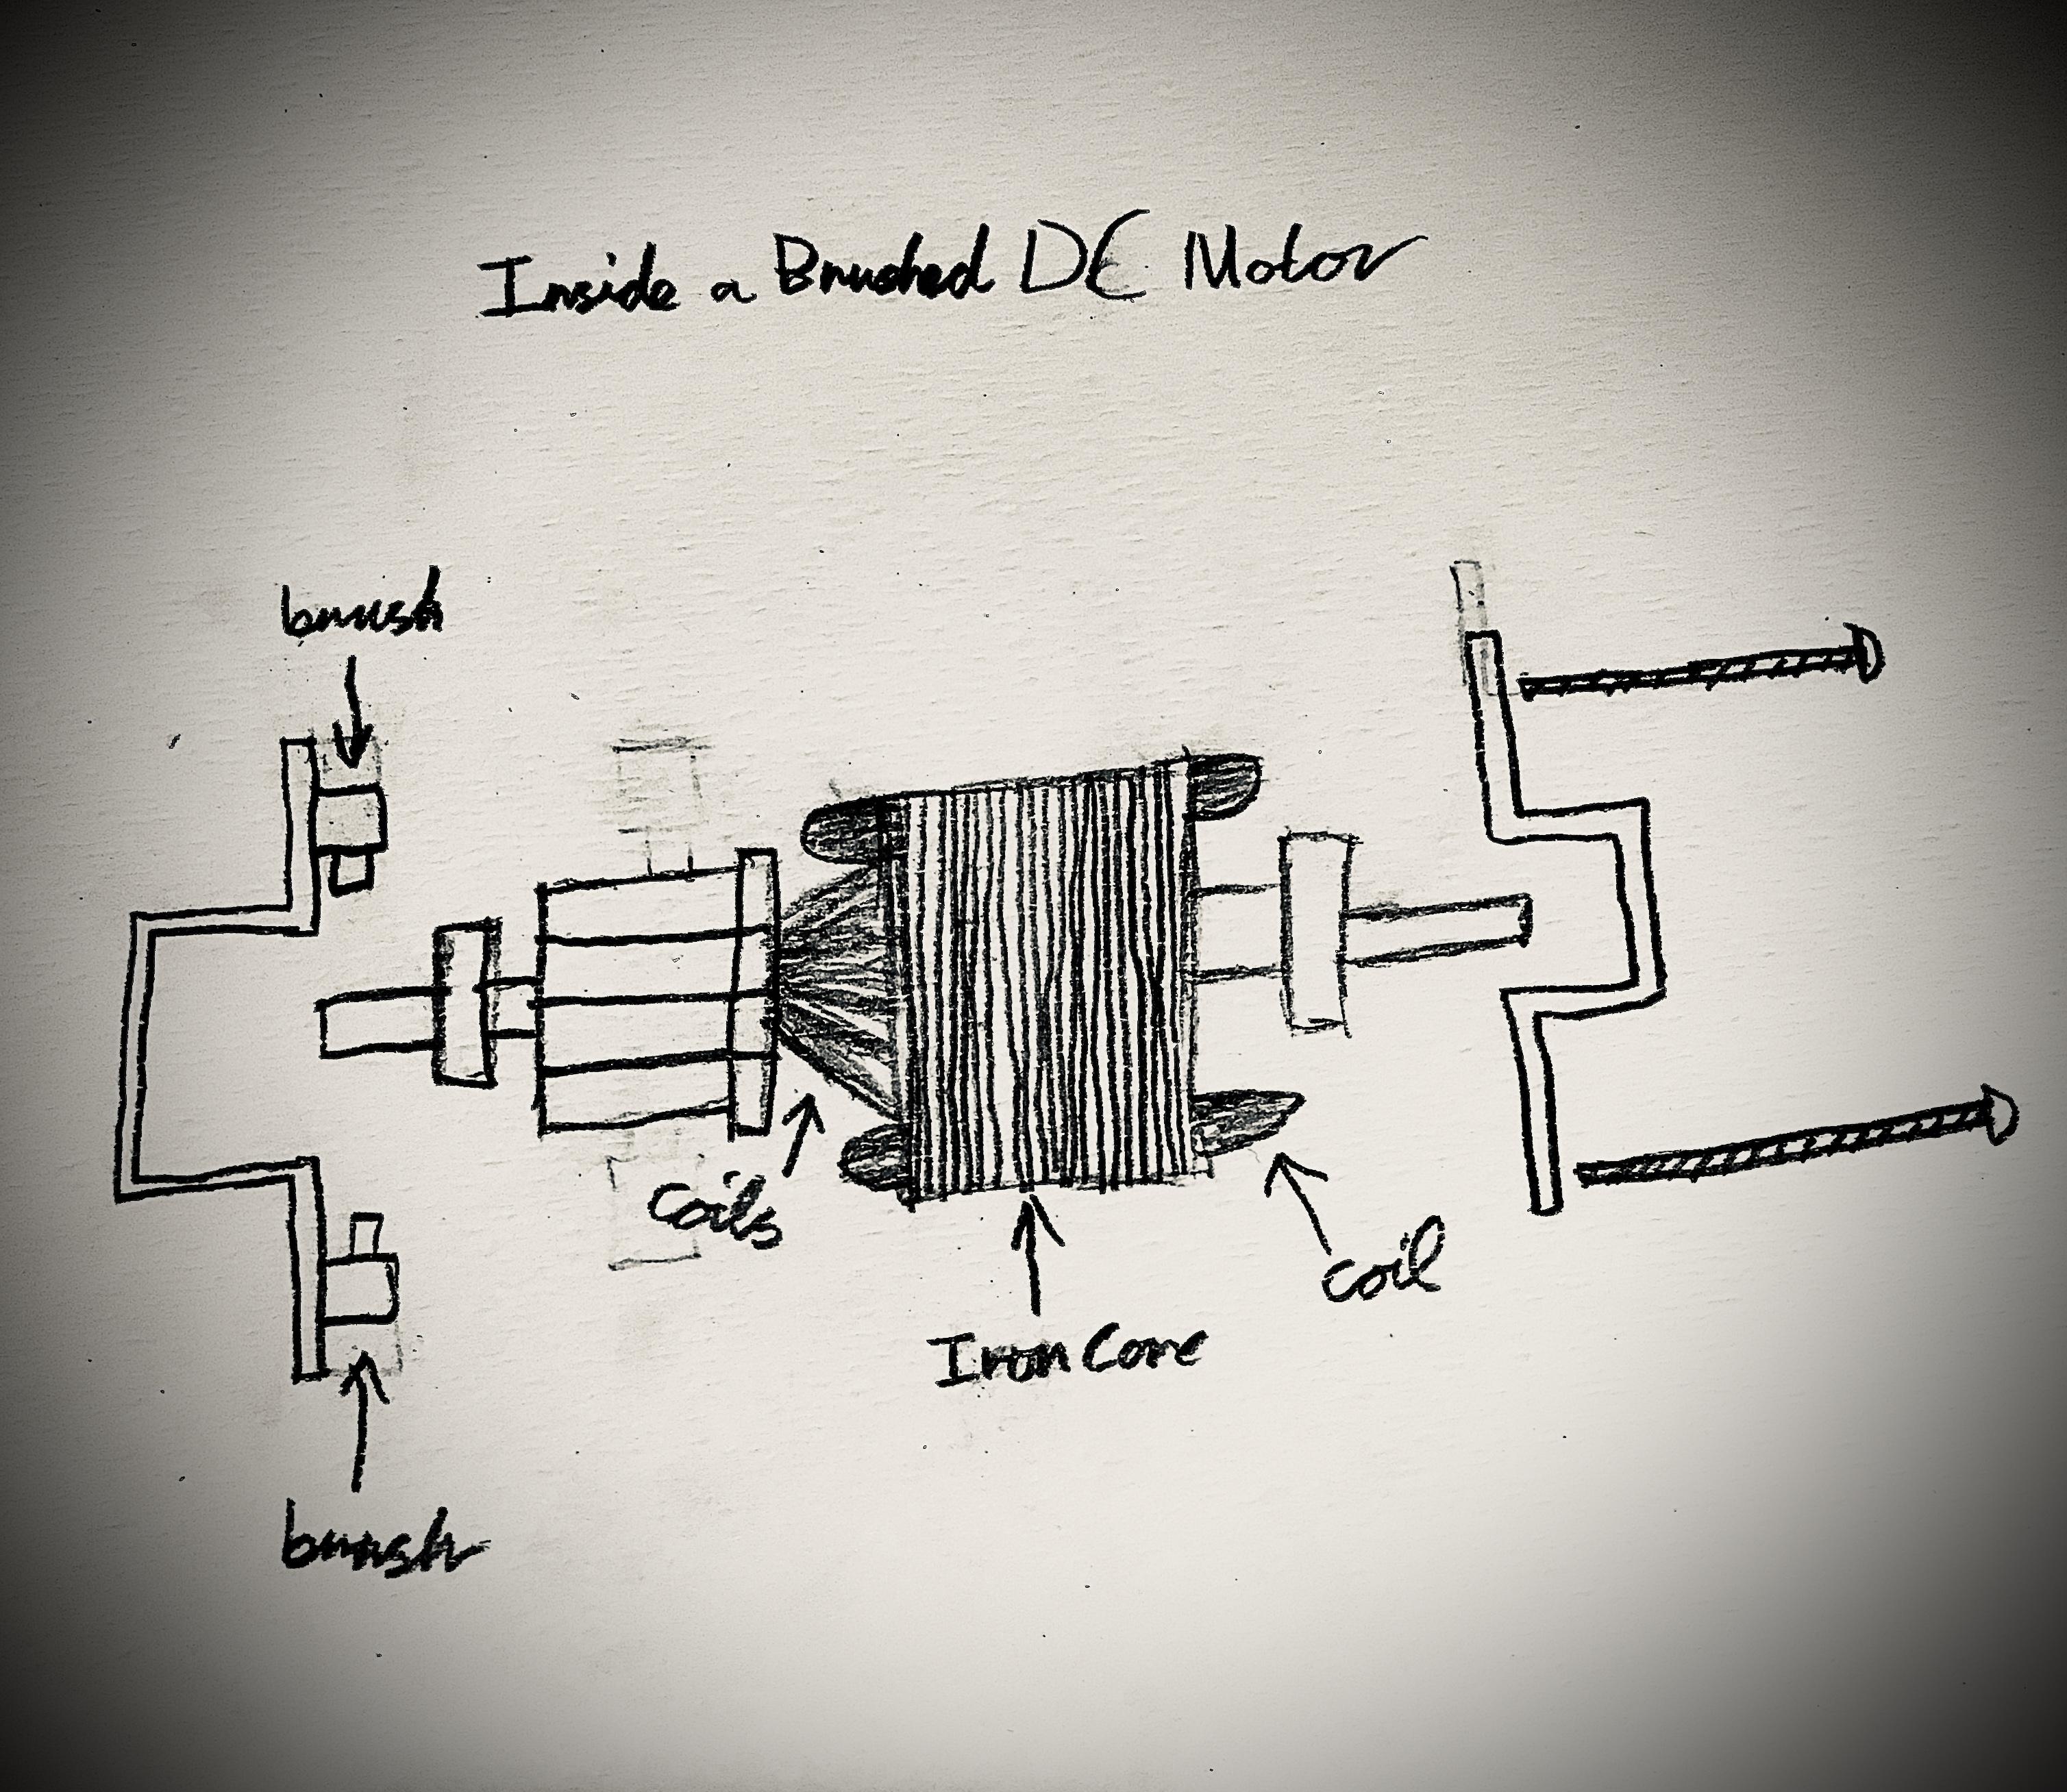 Inside a Brushed DC Motor
brush
coils
coil
Iron Core
brush